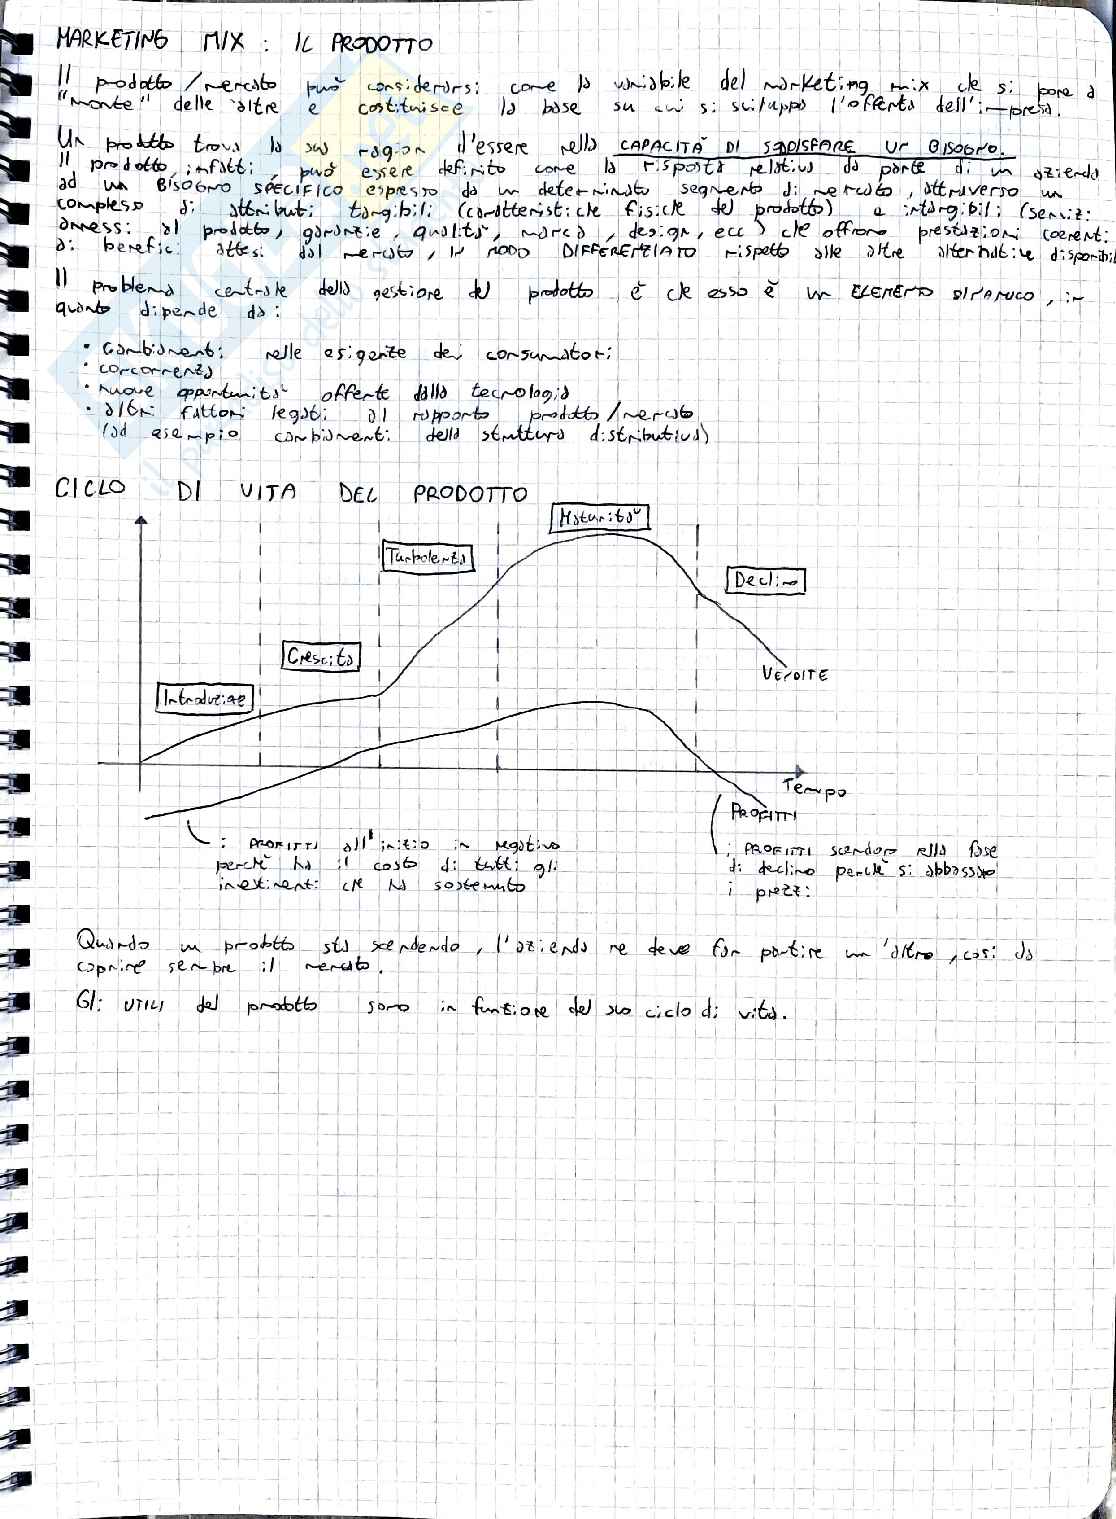 MARKETING MIX: IL PRODOTTO
Il prodotto/mercato può considerarsi come la variabile del marketing mix che si pone a
"monte" delle altre e costituisce la base su cui si sviluppa l'offerta dell'impresa.
Un prodotto trova la sua ragion d'essere nella CAPACITÀ DI SODDISFARE UN BISOGNO.
Il prodotto, infatti, può essere definito come la risposta relativa da parte di un azienda
ad un BISOGNO SPECIFICO espresso da un determinato segmento di mercato, attraverso un
complesso di attributi tangibili (caratteristiche fisiche del prodotto) e intangibili (servizi
annessi al prodotto, garanzie, qualità, marca, design, ecc) che offrono prestazioni coerenti
ai benefici attesi dal mercato, IN MODO DIFFERENZIATO rispetto alle altre alternative disponibili
Il problema centrale della gestione del prodotto è che esso è un ELEMENTO DINAMICO, in
quanto dipende da:
• Cambiamenti nelle esigenze dei consumatori
• concorrenza
• nuove opportunità offerte dalla tecnologia
• altri fattori legati al rapporto prodotto/mercato
(ad esempio cambiamenti della struttura distributiva)
CICLO DI VITA DEL PRODOTTO
Maturità
Turbolenza
Declino
Crescita
VENDITE
Introduzione
Tempo
PROFITTI
i PROFITTI all'inizio in negativo
perchè ha il costo di tutti gli
investimenti che ha sostenuto
i PROFITTI scendono nella fase
di declino perchè si abbassano
i prezzi
Quando un prodotto sta scendendo, l'azienda ne deve far partire un'altro, così da
coprire sempre il mercato.
Gli UTILI del prodotto sono in funzione del suo ciclo di vita.